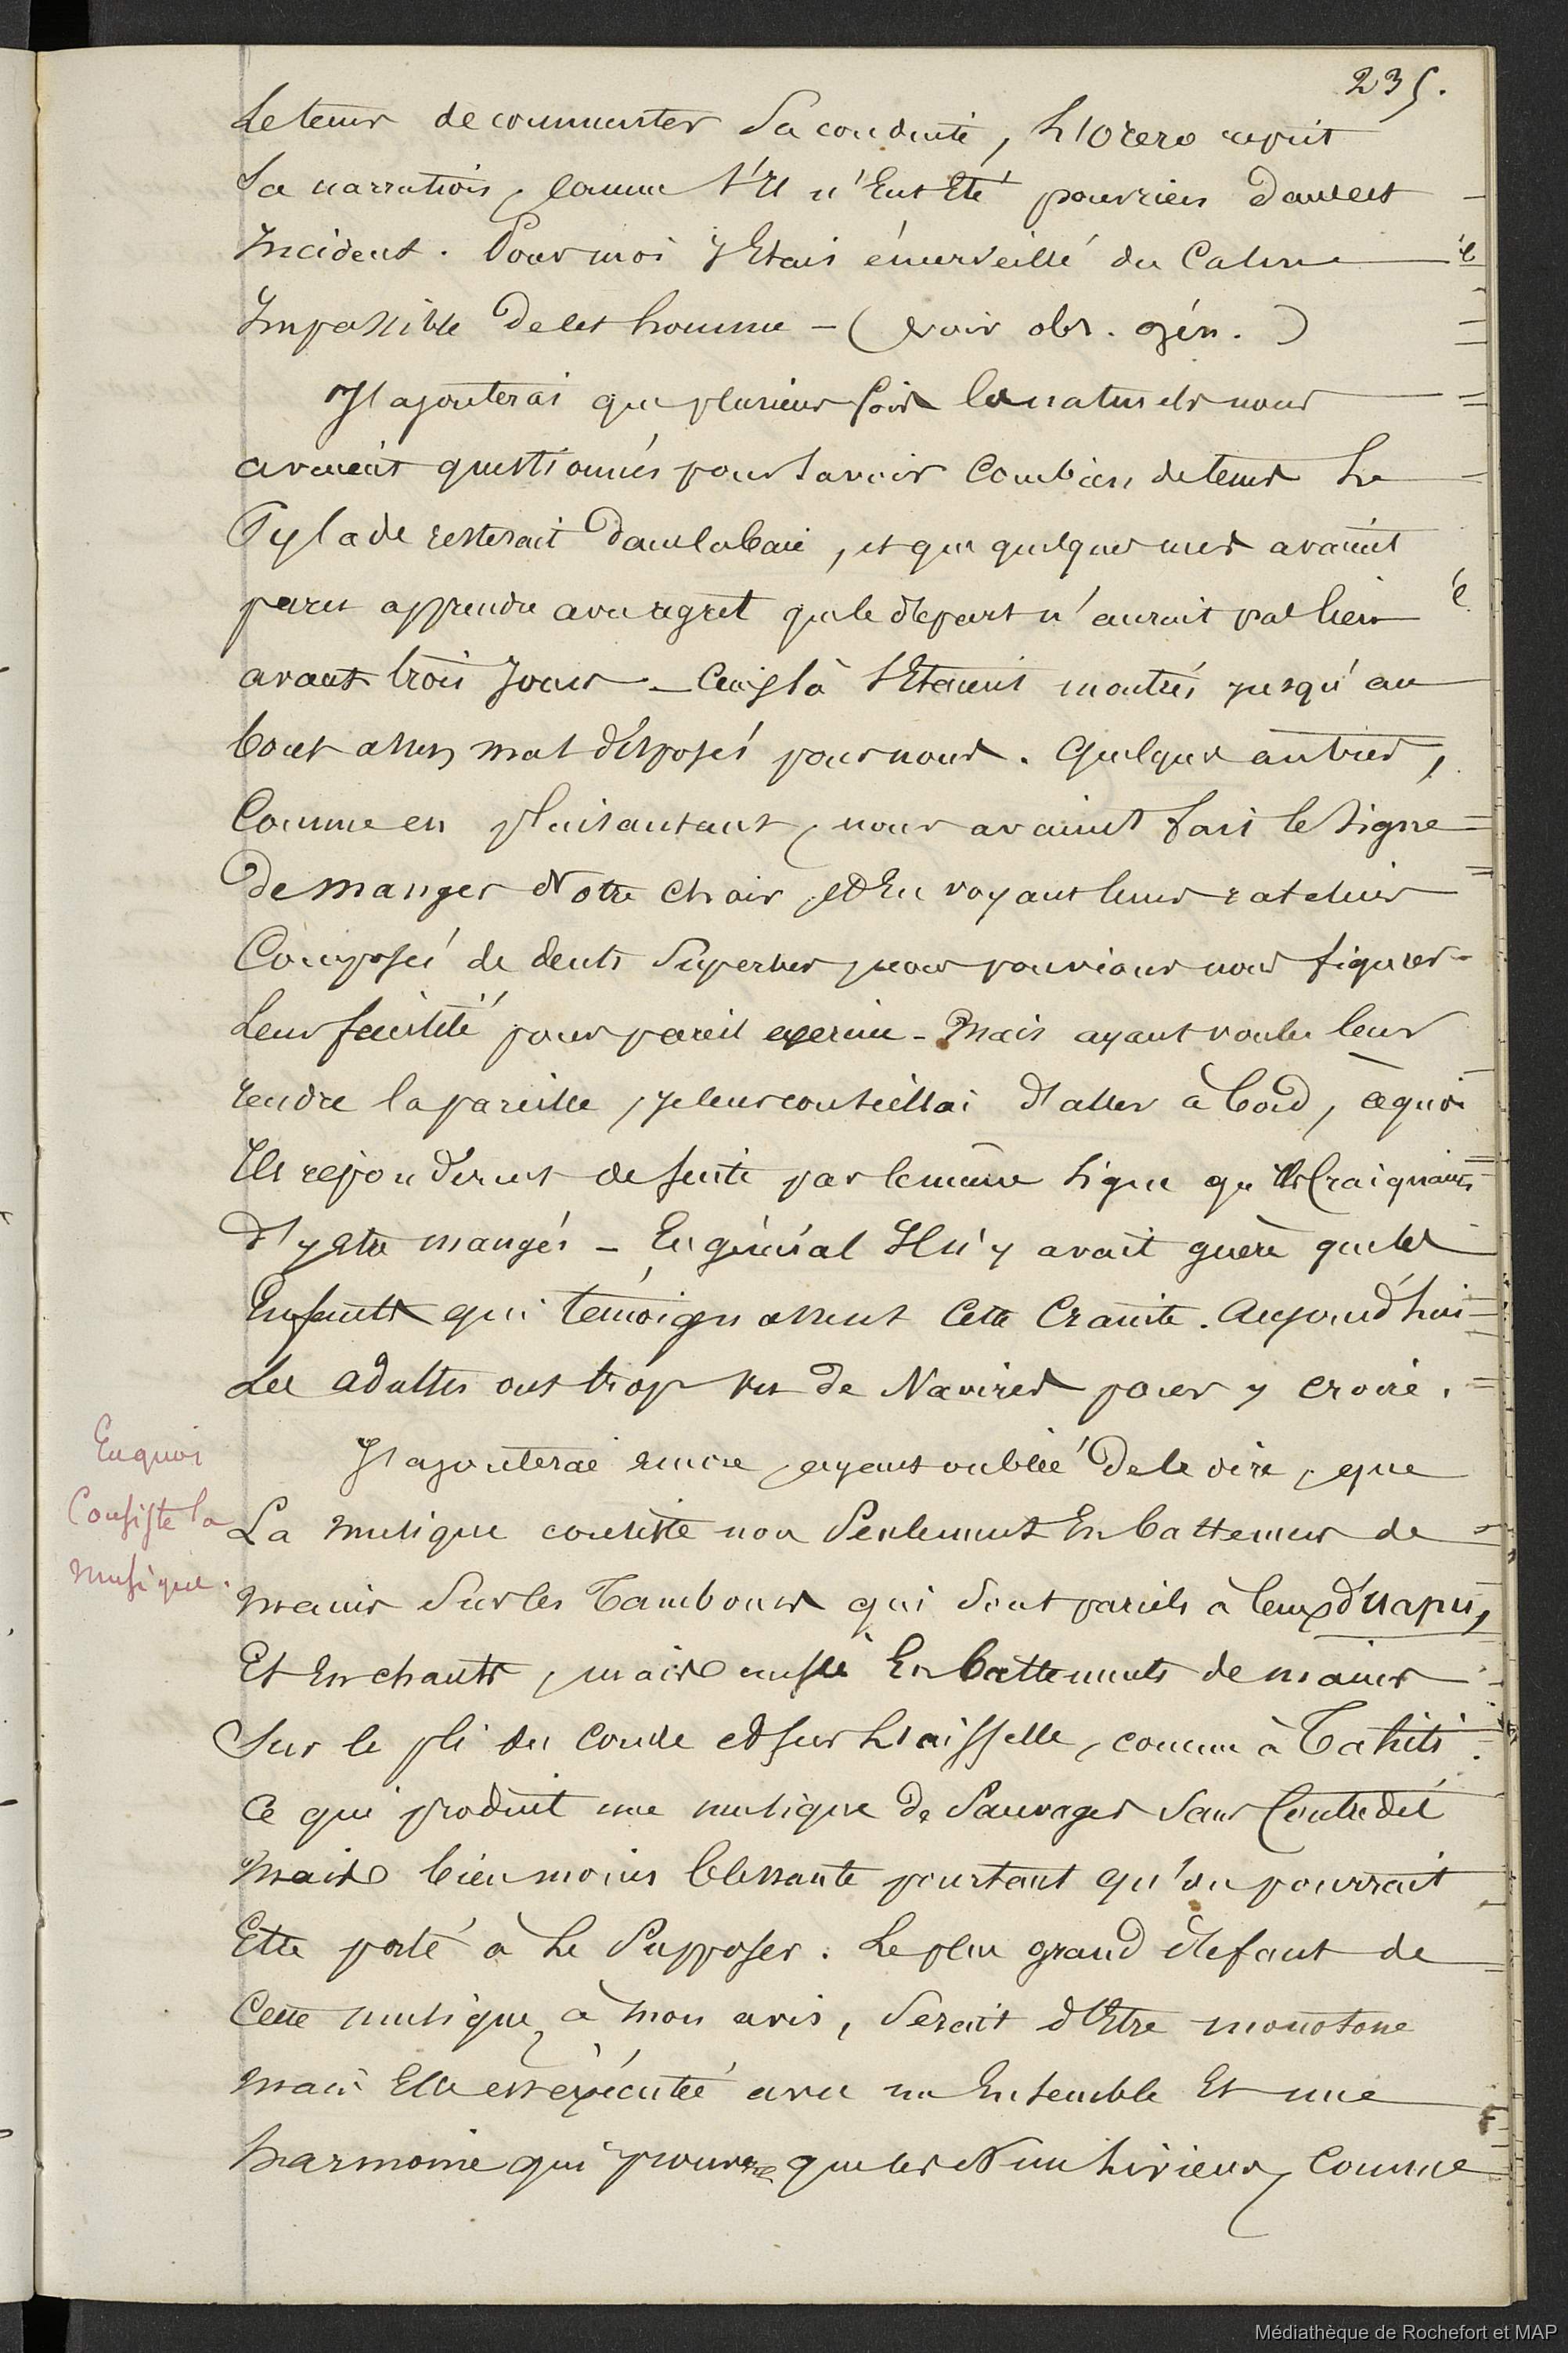 235.
Le tems de commenter sa conduite, L'Orero reprit
Sa narration, comme s'Il n'Eut Eté pour rien dans cet
Incident. Pour moi J'Etais émerveillé du Calme
Impassible de cet homme - (voir obs. gén.)
J'ajouterai que plusieurs fois les naturels nous
avaient questionnés pour savoir Combien de tems Le
Pylade resterait dans la baie, et que quelques uns avaient
parus apprendre avec regret que le départ n'aurait pas lieu
avant trois Jours - Ceux là s'Etaient montrés jusqu'au
bout assez mal disposés pour nous. Quelques autres,
Comme en plaisantant, nous avaient fait le signe
de manger Notre chair, et En voyant leurs rateliers
Composés de dents Superbes, nous pouvions nous figurer
Leur facilité pour pareil exercice - Mais ayant voulu leur
rendre la pareille, je leur conseillai d'aller à bord, à quoi
Ils repondirent de suite par le même signe qu'Ils Craignaient
d'y etre mangés - En général Il n'y avait guère que les
Enfants qui témoignassent Cette Crainte. Aujourd'hui
Les adultes ont trop vu de Navires pour y croire.
Enquoi
Consiste la
musique.
J'ajouterai encore, ayant oublié de le dire, que
La musique consiste non Seulement En battemens de
mains Sur les Tambours qui sont pareils à ceux d'Uapu,
Et En chants, mais aussi En battements de mains
Sur le pli du Coude et sur L'aisselle, comme à Tahiti.
Ce qui produit une musique de Sauvages Sans Contredit
mais bien moins blessante pourtant qu'on pourrait
Etre porté à Le Supposer. Le plus grand défaut de
Cette musique, à mon avis, Serait d'Etre monotone
mais Elle est exécutée avec un Ensemble Et une
harmonie qui prouve que les Nuuhiviens, Comme
Médiathèque de Rochefort et MAP